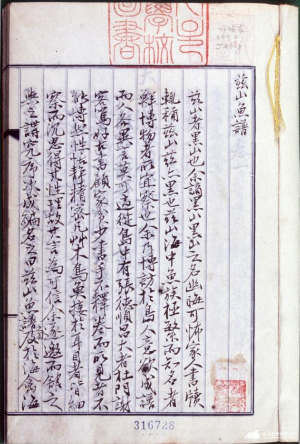 玆山魚譜
玆山者黑山也余謫黑山黑山之名幽晦可怖家人書牘
輒稱玆山玆亦黑也玆山海中魚族極繁而知名者
鮮博物者所宜察也余乃博訪於島人意欲成譜
而人各異言莫可適從島中有張德順昌大者杜門謝
客篤好古書顧家貧少書手不釋卷而所見者不
能博然性恬靜精密凡草木鳥魚接於耳目者皆細
察而沈思得其性理故其言為可信余遂邀而館之
與之講究序次成編名之曰玆山魚譜旁及於海禽海
316728